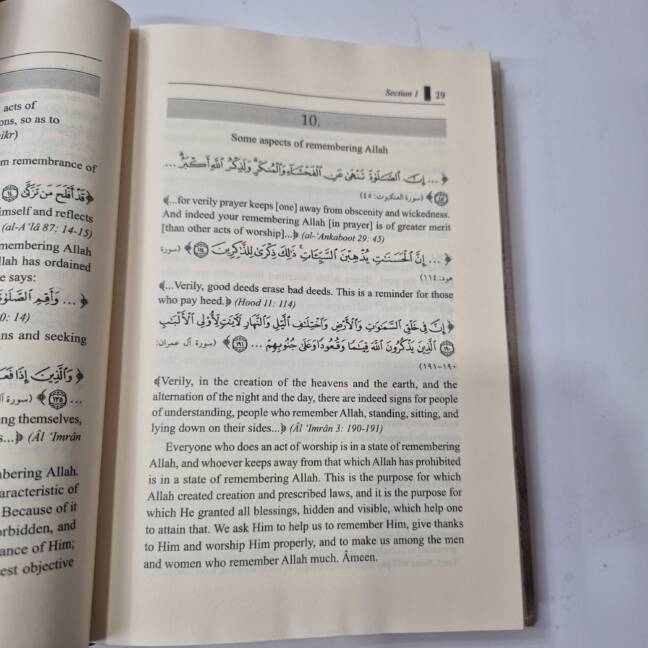 acts of
ons, so as to
ikr)
m remembrance of
﴿قَدْ أَفْلَحَ مَن تَزَكَّىٰ
mself and reflects
(al-A'lâ 87: 14-15)
membering Allah
lah has ordained
e says:
﴿... وَأَقِمِ الصَّلَوٰةَ
0: 14)
ns and seeking
﴿وَالَّذِينَ إِذَا فَعَلُوا
... ﴿١٣٥﴾ (سورة آل
ng themselves,
s...﴾ (Âl 'Imrân
bering Allah.
aracteristic of
Because of it
orbidden, and
ance of Him;
est objective
Section 1 29
10.
Some aspects of remembering Allah
﴿... إِنَّ الصَّلَوٰةَ تَنْهَىٰ عَنِ الْفَحْشَاءِ وَالْمُنكَرِ وَلَذِكْرُ اللَّهِ أَكْبَرُ ...
﴿٤٥﴾ (سورة العنكبوت: ٤٥)
﴿...for verily prayer keeps [one] away from obscenity and wickedness.
And indeed your remembering Allah [in prayer] is of greater merit
[than other acts of worship]...﴾ (al-'Ankaboot 29: 45)
﴿... إِنَّ الْحَسَنَٰتِ يُذْهِبْنَ السَّيِّـَٔاتِ ذَٰلِكَ ذِكْرَىٰ لِلذَّٰكِرِينَ ﴿١١٤﴾ (سورة
هود: ١١٤)
﴿...Verily, good deeds erase bad deeds. This is a reminder for those
who pay heed.﴾ (Hood 11: 114)
﴿إِنَّ فِي خَلْقِ السَّمَٰوَٰتِ وَالْأَرْضِ وَاخْتِلَٰفِ الَّيْلِ وَالنَّهَارِ لَـَٔايَٰتٍ لِّأُو۟لِي الْأَلْبَٰبِ
﴿١٩٠﴾ الَّذِينَ يَذْكُرُونَ اللَّهَ قِيَٰمًا وَقُعُودًا وَعَلَىٰ جُنُوبِهِمْ ... ﴿١٩١﴾ (سورة آل عمران:
١٩٠-١٩١)
﴿Verily, in the creation of the heavens and the earth, and the
alternation of the night and the day, there are indeed signs for people
of understanding, people who remember Allah, standing, sitting, and
lying down on their sides...﴾ (Âl 'Imrân 3: 190-191)
Everyone who does an act of worship is in a state of remembering
Allah, and whoever keeps away from that which Allah has prohibited
is in a state of remembering Allah. This is the purpose for which
Allah created creation and prescribed laws, and it is the purpose for
which He granted all blessings, hidden and visible, which help one
to attain that. We ask Him to help us to remember Him, give thanks
to Him and worship Him properly, and to make us among the men
and women who remember Allah much. Âmeen.